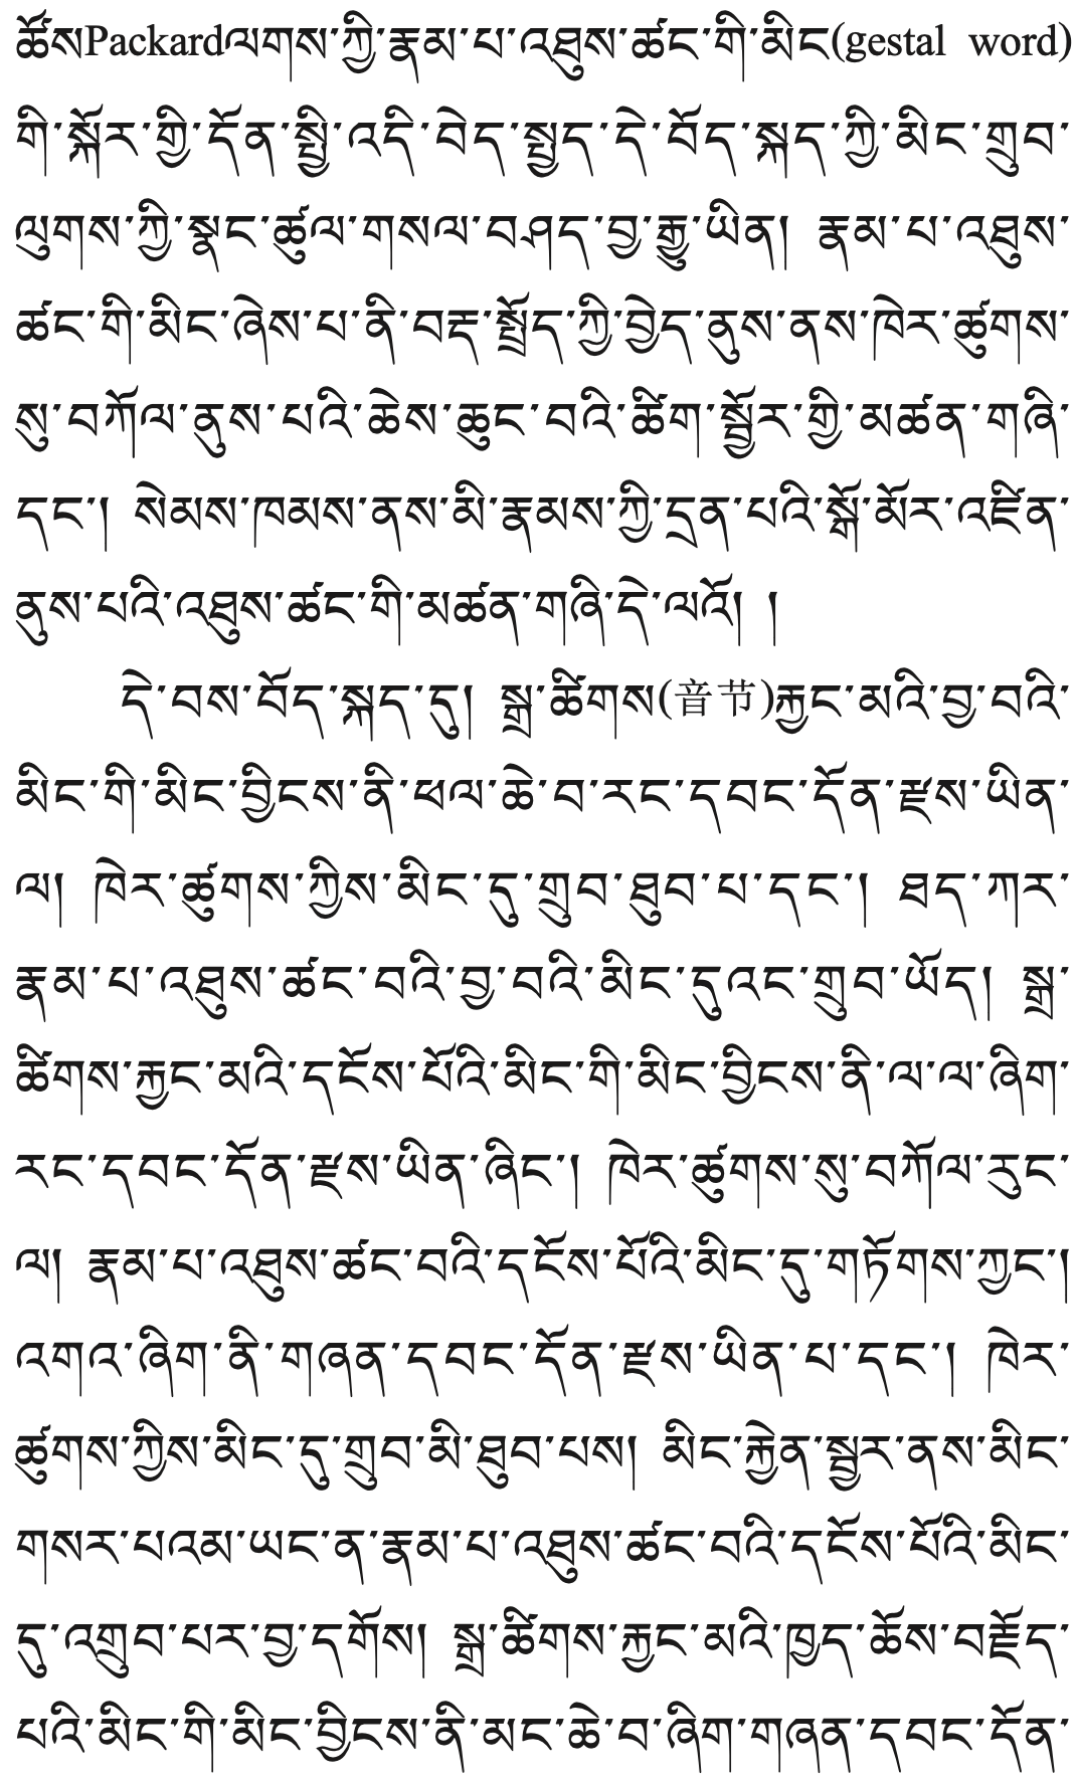 ཚོསPackardལགས་ཀྱི་རྣམ་པ་འཐུས་ཚང་གི་མིང(gestal word)
གི་སྐོར་གྱི་དོན་སྤྱི་འདི་བེད་སྤྱད་དེ་བོད་སྐད་ཀྱི་མིང་གྲུབ་
ལུགས་ཀྱི་སྣང་ཚུལ་གསལ་བཤད་བྱ་རྒྱུ་ཡིན། རྣམ་པ་འཐུས་
ཚང་གི་མིང་ཞེས་པ་ནི་བརྡ་སྤྲོད་ཀྱི་བྱེད་ནུས་ནས་ཁེར་ཚུགས་
སུ་བཀོལ་ནུས་པའི་ཆེས་ཆུང་བའི་ཚིག་སྦྱོར་གྱི་མཚན་གཞི་
དང་། སེམས་ཁམས་ནས་མི་རྣམས་ཀྱི་དྲན་པའི་སྒོ་མོར་འཛིན་
ནུས་པའི་འཐུས་ཚང་གི་མཚན་གཞི་དེ་ལའོ། །
དེ་བས་བོད་སྐད་དུ། སྒྲ་ཚིགས(音节)རྐྱང་མའི་བྱ་བའི་
མིང་གི་མིང་བྱིངས་ནི་ཕལ་ཆེ་བ་རང་དབང་དོན་རྫས་ཡིན་
ལ། ཁེར་ཚུགས་ཀྱིས་མིང་དུ་གྲུབ་ཐུབ་པ་དང་། ཐད་ཀར་
རྣམ་པ་འཐུས་ཚང་བའི་བྱ་བའི་མིང་དུའང་གྲུབ་ཡོད། སྒྲ་
ཚིགས་རྐྱང་མའི་དངོས་པོའི་མིང་གི་མིང་བྱིངས་ནི་ལ་ལ་ཞིག་
རང་དབང་དོན་རྫས་ཡིན་ཞིང་། ཁེར་ཚུགས་སུ་བཀོལ་རུང་
ལ། རྣམ་པ་འཐུས་ཚང་བའི་དངོས་པོའི་མིང་དུ་གཏོགས་ཀྱང་།
འགའ་ཞིག་ནི་གཞན་དབང་དོན་རྫས་ཡིན་པ་དང་། ཁེར་
ཚུགས་ཀྱིས་མིང་དུ་གྲུབ་མི་ཐུབ་པས། མིང་རྐྱེན་སྦྱར་ནས་མིང་
གསར་པའམ་ཡང་ན་རྣམ་པ་འཐུས་ཚང་བའི་དངོས་པོའི་མིང་
དུ་འགྲུབ་པར་བྱ་དགོས། སྒྲ་ཚིགས་རྐྱང་མའི་ཁྱད་ཆོས་བརྗོད་
པའི་མིང་གི་མིང་བྱིངས་ནི་མང་ཆེ་བ་ཞིག་གཞན་དབང་དོན་